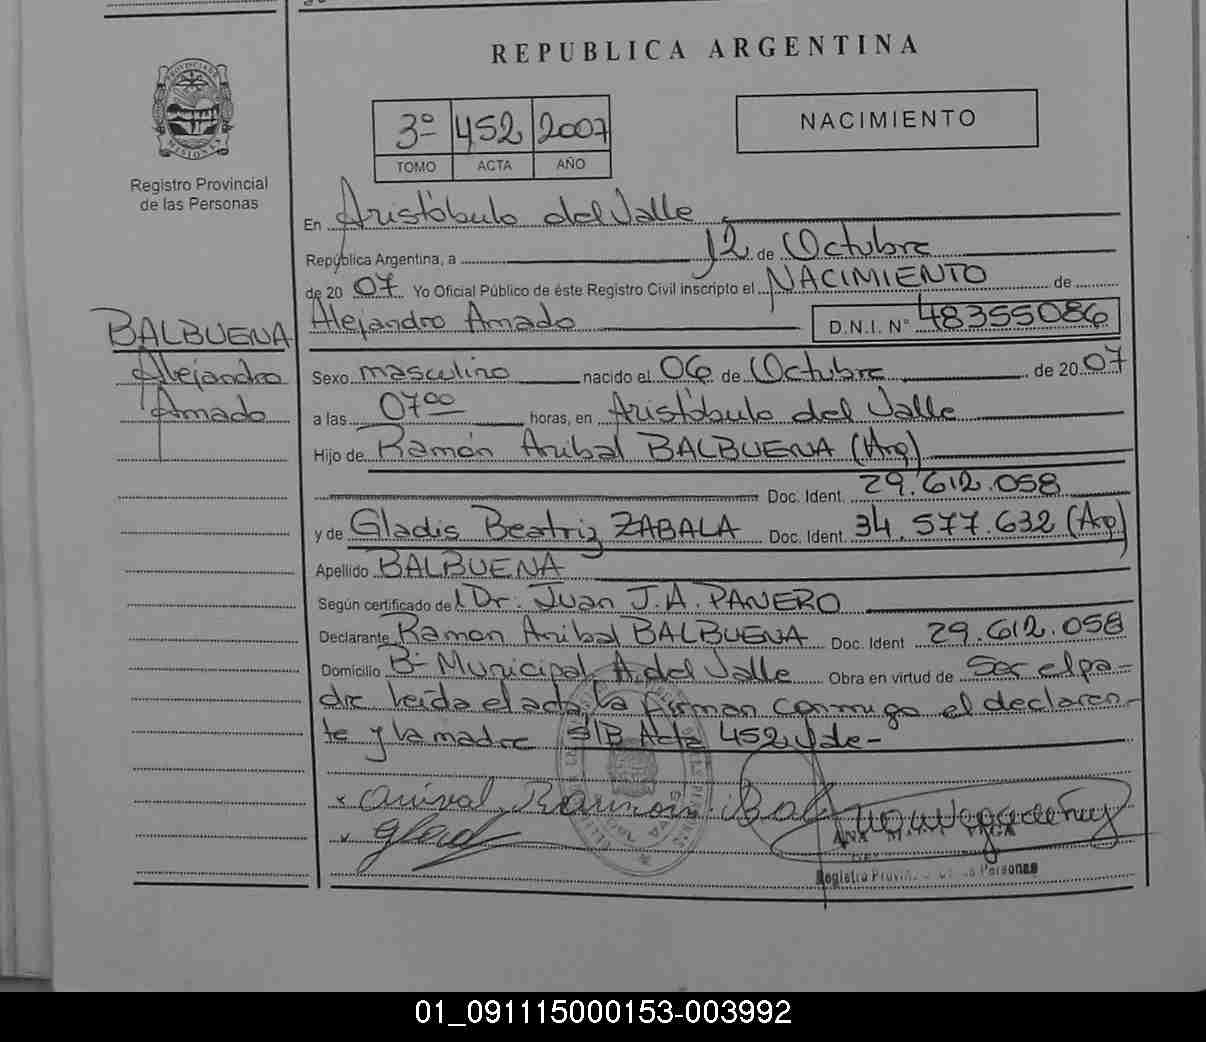 REPUBLICA ARGENTINA
PROVINCIA DE MISIONES
Registro Provincial
de las Personas
3º 452 2007
TOMO ACTA AÑO
NACIMIENTO
En Aristóbulo del Valle
República Argentina, a 12 de Octubre
de 20 07 Yo Oficial Público de éste Registro Civil inscripto el NACIMIENTO de
BALBUENA
Alejandro
Amado
Alejandro Amado D.N.I. Nº 48355086
Sexo masculino nacido el 06 de Octubre de 20 07
a las 07 00 horas, en Aristóbulo del Valle
Hijo de Ramón Anibal BALBUENA (Arg)
Doc. Ident. 29.612.058
y de Gladis Beatriz ZABALA Doc. Ident. 34.577.632 (Arg)
Apellido BALBUENA
Según certificado del Dr. Juan J.A. PANERO
Declarante Ramon Anibal BALBUENA Doc. Ident 29.612.058
Domicilio Bº Municipal A. del Valle Obra en virtud de Ser el pa-
dre leída el acta, la firman conmigo el declaran-
te y la madre S/B Acta 452 Vde-
Anival Ramon Bal
Glad
Registro Personas
01_091115000153-003992